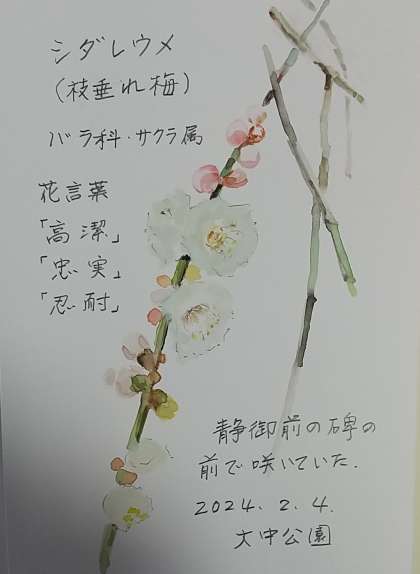 シダレウメ
(枝垂れ梅)
バラ科・サクラ属
花言葉
「高潔」
「忠実」
「忍耐」
静御前の碑の
前で咲いていた.
2024. 2. 4.
大中公園